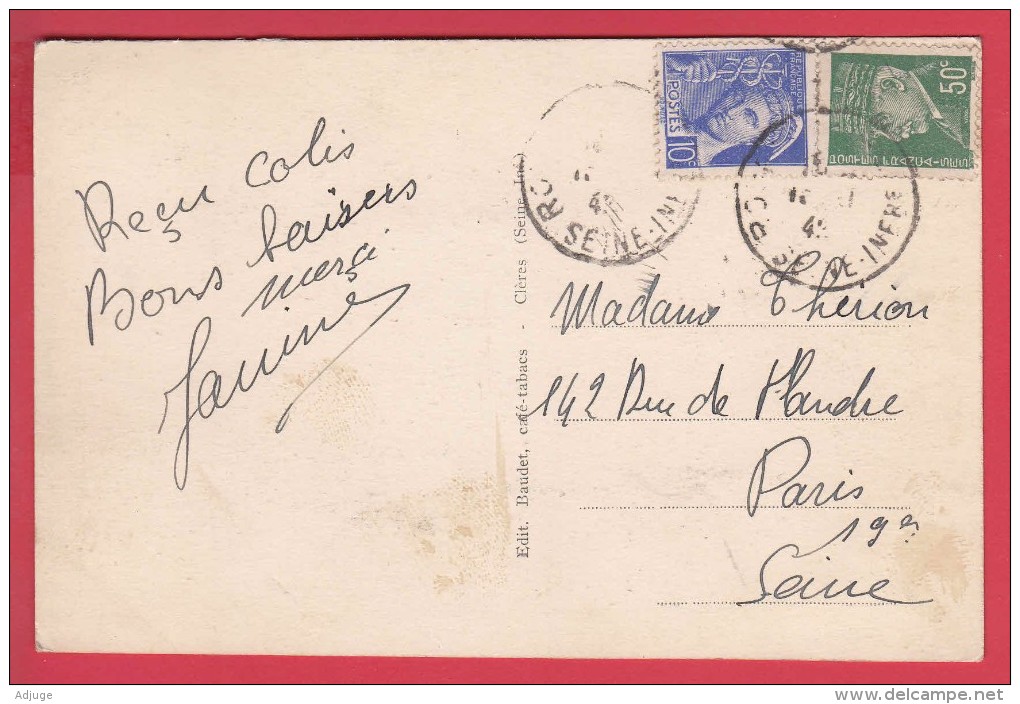 Reçu colis
Bons baisers
merçi
Janine
Edit. Baudet, café-tabacs - Clères (Seine-Inf.)
POSTES
10c
REPUBLIQUE
FRANÇAISE
50c
POSTES FRANÇAISES
SEINE-INF
NE-INFRE
Madame Thérion
142 Rue de Flandre
Paris
19e
Seine
Adjuge
www.delcampe.net